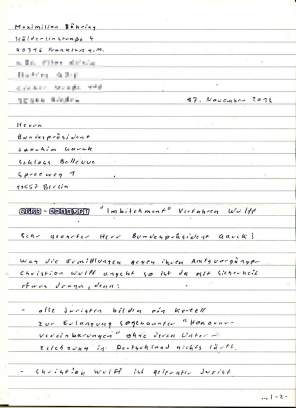 Maximilian Bähring
Hölderlinstraße 4
60316 Frankfurt a.M.
17. November 2012
Herrn
Bundespräsident
Joachim Gauck
Schloss Bellevue
Spreeweg 1
10557 Berlin
"Imbitchment" Verfahren Wulff
Sehr geehrter Herr Bundespräsident Gauck!
Was die Ermittlungen gegen ihren Amtsvorgänger
Christian Wulff angeht so ist da mit Sicherheit
etwas dran, denn:
- alle Juristen bilden ein Kartell
zur Erlangung sogenannter "Honorar-
vereinbarungen" ohne deren Unter-
zeichnung in Deutschland nichts läuft.
- Christian Wulff ist gelernter Jurist
...-2-